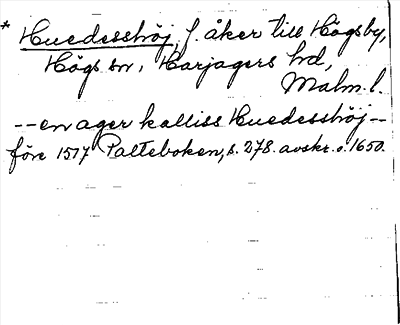 * Huedesshöj, f. åker till Högsby,
Högs sn, Harjagers hd,
Malm. l.
-- en ager kalliss Huedesshöj --
före 1517 Palteboken, s. 278. avskr. o. 1650.